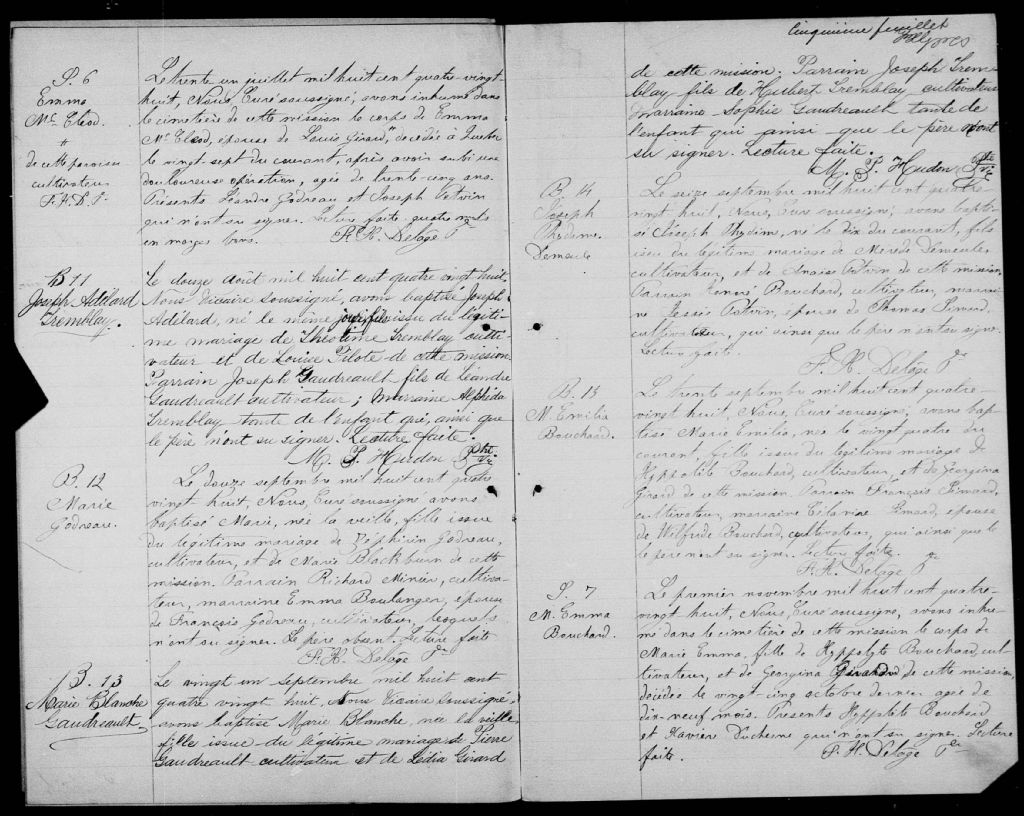 S. 6
Emma
Mc Cleod
"
de cette paroisse
cultivateur
F.X.D. Ptr
Le trente un juillet mil huit cent quatre-vingt-
huit, Nous, Curé soussigné, avons inhumé dans
le cimetière de cette mission le corps de Emma
Mc Cleod, épouse de Louis Girard, " décédée à Québec
le vingt-sept du courant, après avoir subi une
douloureuse opération, agée de trente-cinq ans.
Présents Léandre Godreau et Joseph Potvin
qui n'ont su signer. Lecture faite quatre mots
en marge bons. F. X. Delâge Ptr
B 11
Joseph Adélard
Tremblay.
Le douze Août mil huit cent quatre vingt huit
Nous Vicaire soussigné, avons baptisé Joseph
Adélard, né le même jour, fils issu du légiti-
me mariage de Théotime Tremblay culti-
vateur et de Louise Pilote de cette mission.
Parrain Joseph Gaudreault fils de Léandre
Gaudreault cultivateur; Marraine Alphéda
Tremblay tante de l'enfant qui, ainsi que
le père n'ont su signer. Lecture faite.
M. P. Hudon Ptre Vic
B. 12
Marie
Godreau.
Le douze septembre mil huit cent quatre
vingt huit, Nous, Curé soussigné avons
baptisé Marie, née la veille, fille issue
du légitime mariage de Zéphirin Godreau,
cultivateur, et de Marie Blackburn de cette
mission. Parrain Richard Minier, cultiva-
teur, marraine Emma Boulanger, épouse
de François Godreau, cultivateur, lesquels
n'ont su signer. Le père absent. Lecture faite
F. X. Delâge Ptr
B. 13
Marie Blanche
Gaudreault.
Le vingt un septembre mil huit cent
quatre vingt huit, Nous Vicaire soussigné
avons baptisé Marie Blanche, née la veille
fille issue du légitime mariage de Pierre
Gaudreault cultivateur et de Lédia Girard
Cinquième feuillet
de cette mission. Parrain Joseph Trem-
blay, fils de Hubert Tremblay, cultivateur
Marraine Sophie Gaudreault tante de
l'enfant qui ainsi que le père n'ont
su signer. Lecture faite.
M. P. Hudon Ptre Vic
B. 14
Joseph
Phydime
Demeule
Le seize septembre mil huit cent quatre-
vingt huit, Nous, Curé soussigné, avons bapti-
sé Joseph Phydime, né le dix du courant, fils
issu du légitime mariage de Mérède Demeule,
cultivateur, et de Anaïse Potvin de cette mission.
Parrain Honoré Bouchard, cultivateur, marrai-
ne Jessée Potvin, épouse de Thomas Simard,
cultivateur, qui ainsi que le père n'ont su signer.
Lecture faite.
F. X. Delâge Ptr
B. 15
M. Emilia
Bouchard.
Le trente septembre mil huit cent quatre-
vingt huit, Nous, Curé soussigné, avons bap-
tisé Marie Emilia, née le vingt quatre du
courant, fille issue du légitime mariage de
Hyppolite Bouchard, cultivateur, et de Georgina
Girard de cette mission. Parrain François Simard,
cultivateur, marraine Simard, épouse
de Wilfride Bouchard, cultivateur, qui ainsi que le
le père n'ont su signer. Lecture faite.
F. X. Delâge Ptr
S. 7
M. Emma
Bouchard.
Le premier novembre mil huit cent quatre-
vingt-huit, Nous, Curé soussigné, avons inhu-
mé dans le cimetière de cette mission le corps de
Marie Emma, fille de Hyppolyte Bouchard, cul-
tivateur, et de Georgina Girard de cette mission,
décédée le vingt-cinq octobre dernier agée de
dix-neuf mois. Présents Hyppolyte Bouchard
et Xavier Duchesne qui n'ont su signer. Lecture
faite. F. X. Delâge Ptr